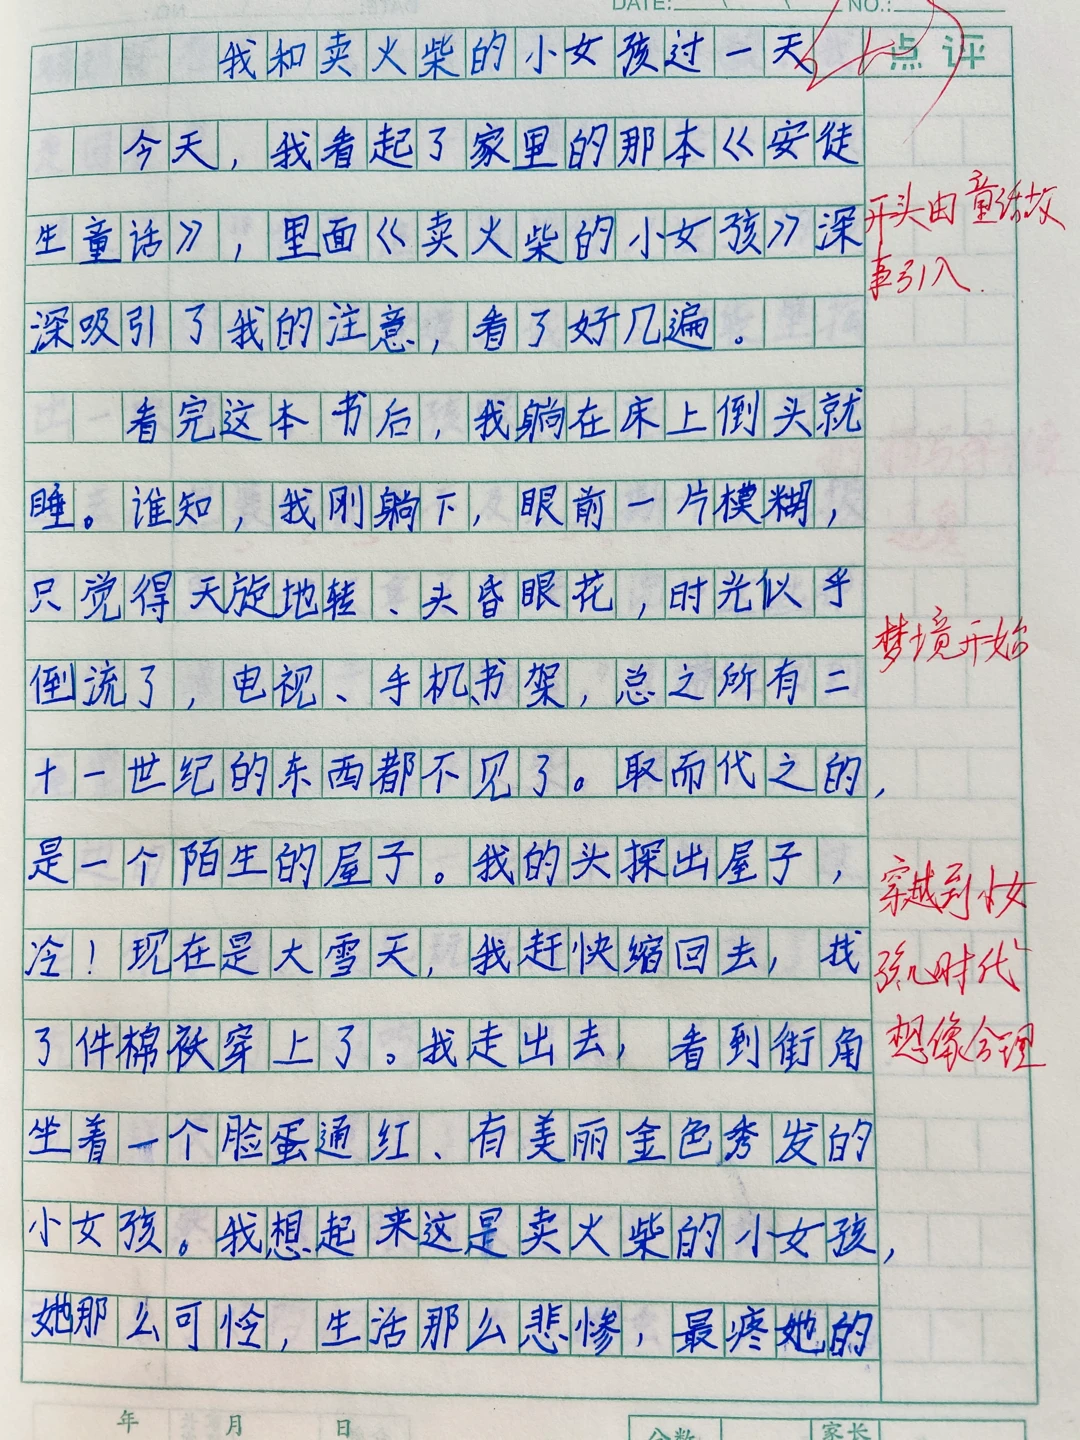 DATE: NO.:
我和卖火柴的小女孩过一天
点评
今天，我看起了家里的那本《安徒
生童话》，里面《卖火柴的小女孩》深
深吸引了我的注意，看了好几遍。
开头由童话故
事引入.
看完这本书后，我躺在床上倒头就
睡。谁知，我刚躺下，眼前一片模糊，
只觉得天旋地转、头昏眼花，时光似乎
倒流了，电视、手机、书架，总之所有二
梦境开始
十一世纪的东西都不见了。取而代之的，
是一个陌生的屋子。我的头探出屋子，
冷！现在是大雪天，我赶快缩回去，找
了件棉袄穿上了。我走出去，看到街角
穿越到小女
孩儿时代
想像合理
坐着一个脸蛋通红、有美丽金色秀发的
小女孩。我想起来这是卖火柴的小女孩，
她那么可怜，生活那么悲惨，最疼她的
年 月 日
分数
家长